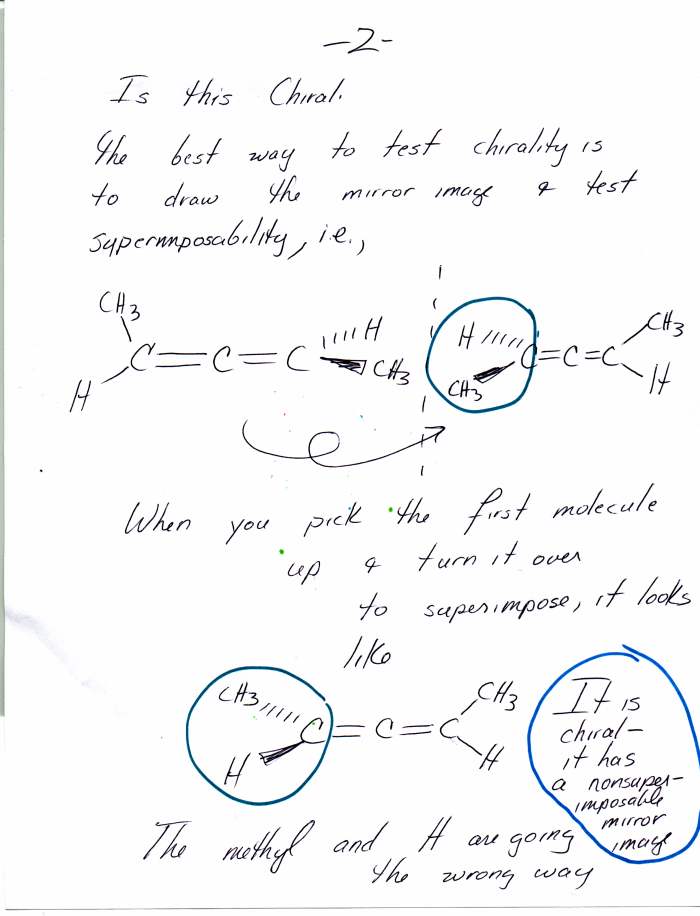 -2-
Is this Chiral.
The best way to test chirality is
to draw the mirror image & test
superimposability, i.e.,
CH3 H CH3
C=C=C
H
H CH3
C=C=C
CH3 H
When you pick the first molecule
up & turn it over
to superimpose, it looks
like
CH3 CH3
C=C=C
H H
It is
chiral-
it has
a nonsuper-
imposable
mirror
image
The methyl and H are going
the wrong way